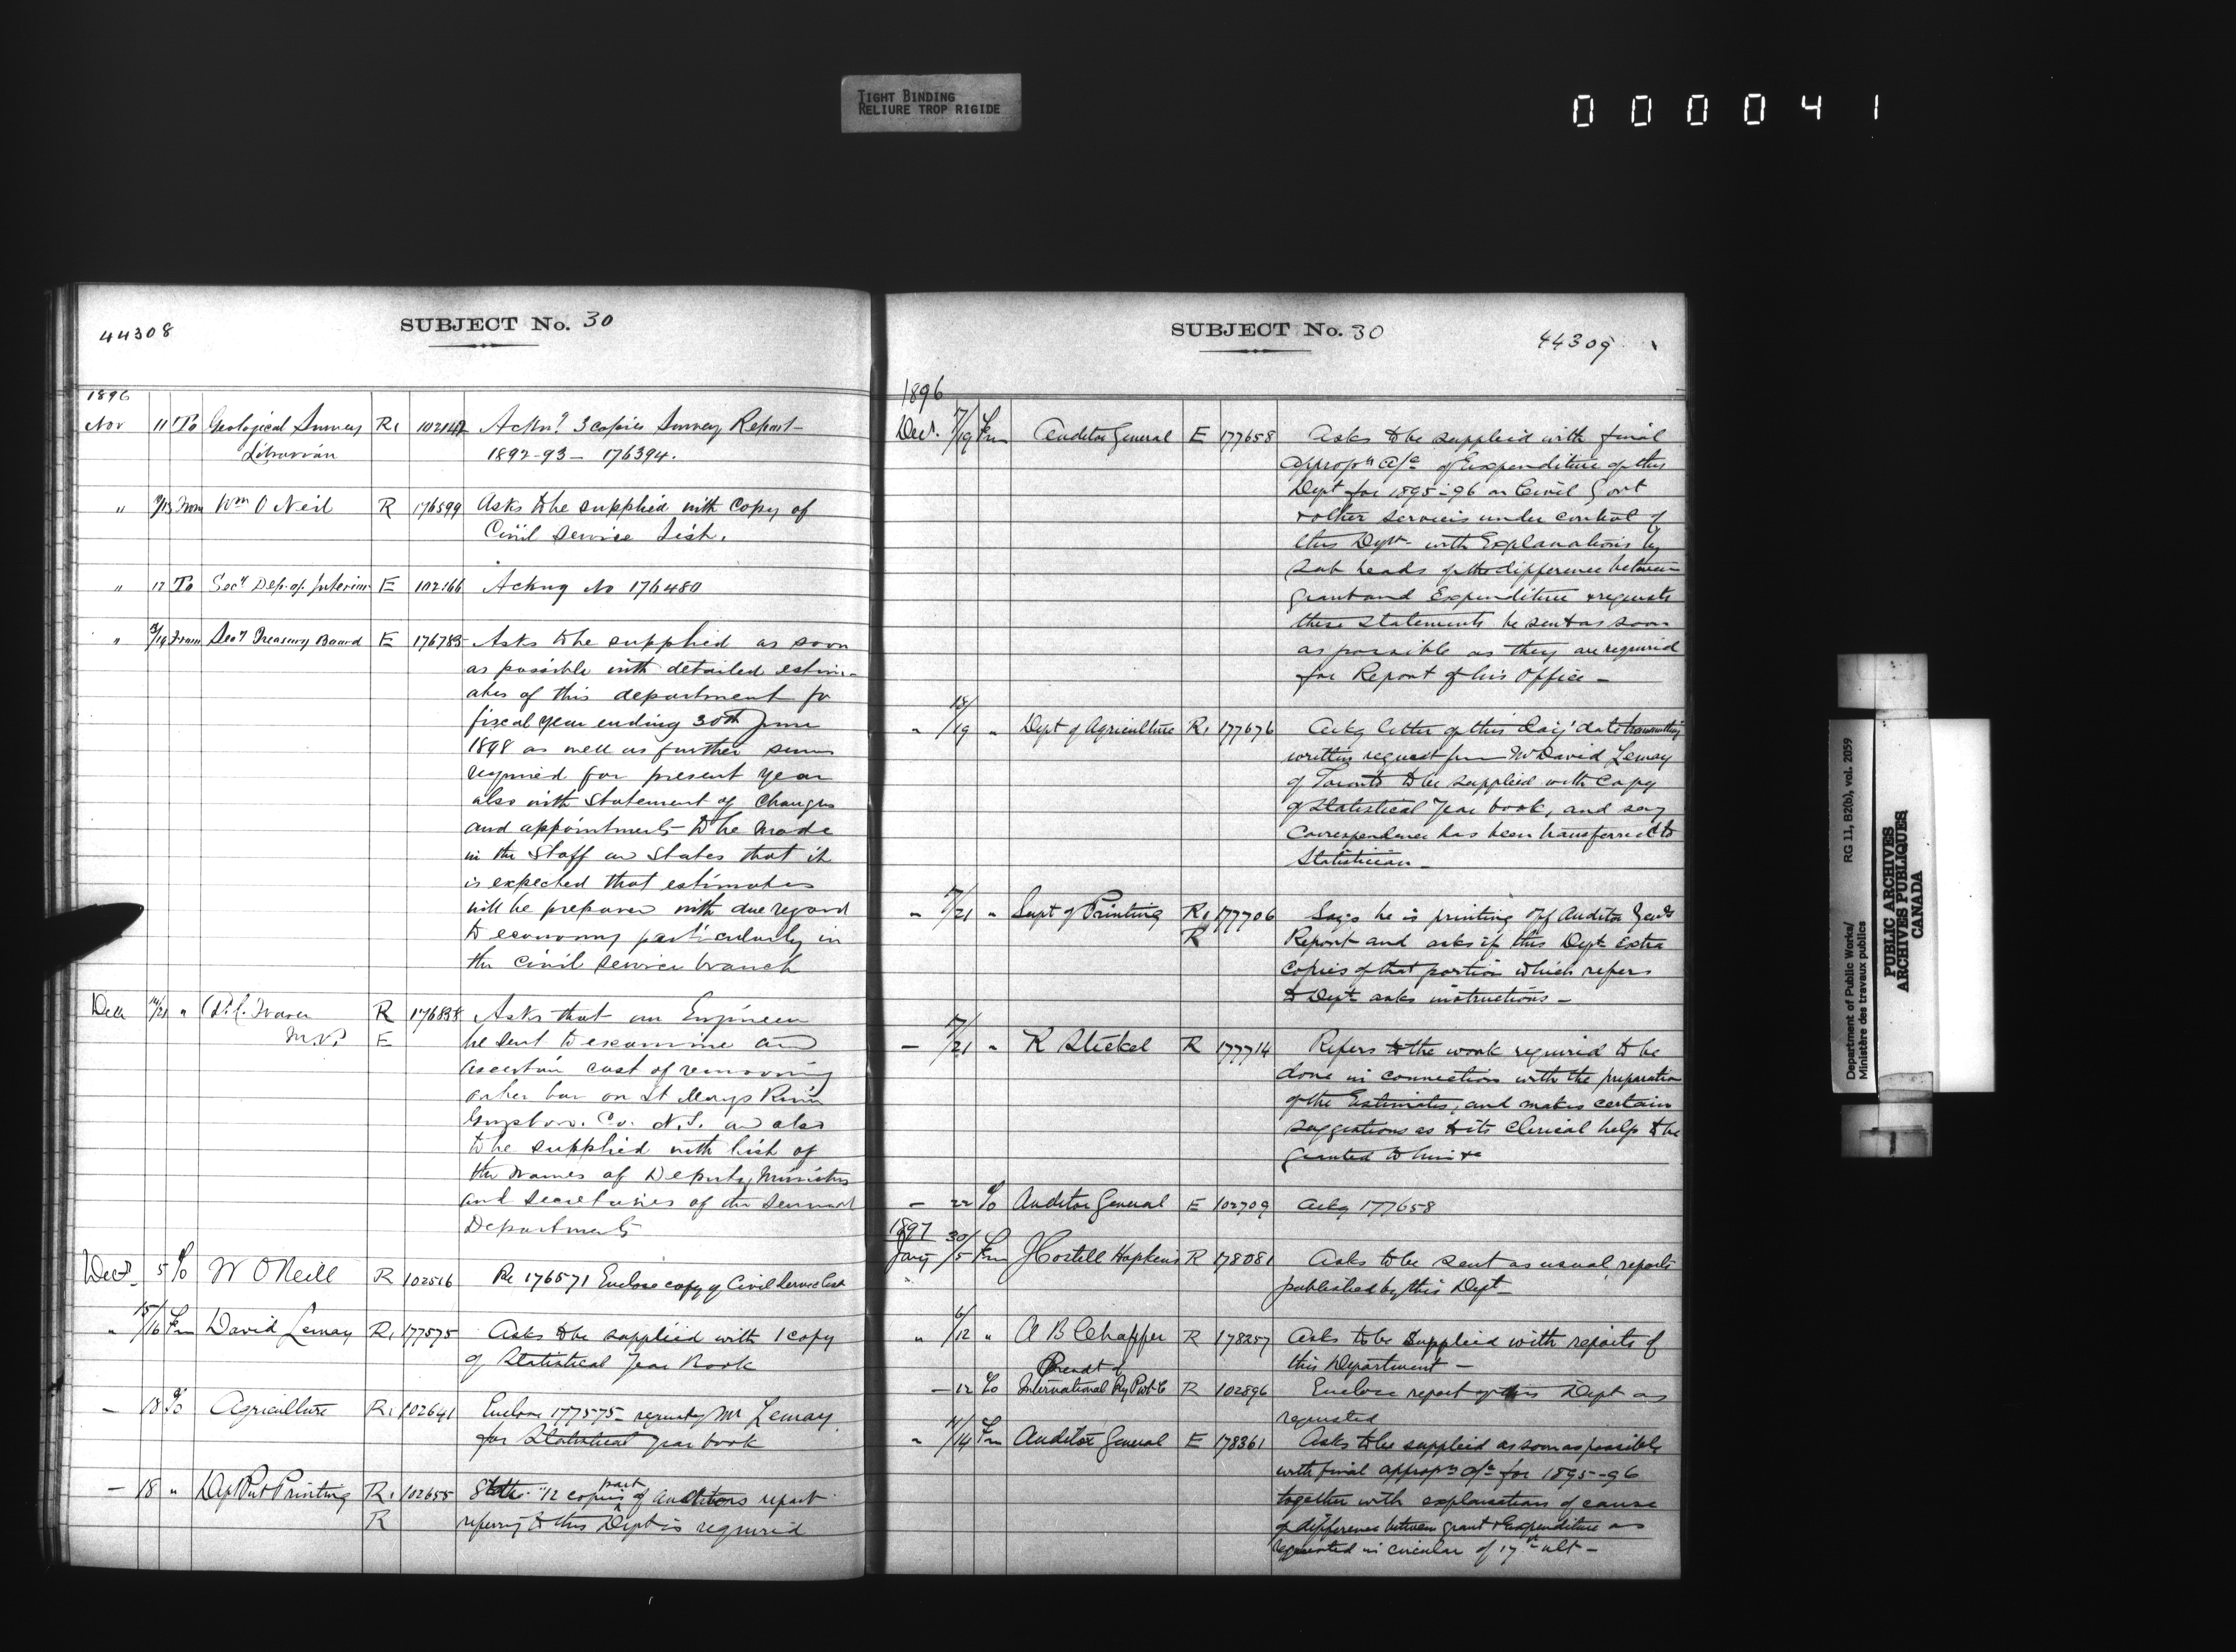 TIGHT BINDING
RELIURE TROP RIGIDE
000041
44308
SUBJECT No. 30
1896
Nov 11 To Geological Survey R1 102147 Ackn? 3 copies Survey Report
Librarian 1892-93 - 176394.
" From Wm O Neil R 176599 Asks to be supplied with copy of
Civil Service List.
" 12 To Secy Dep. of Interior E 102166 Ackng No 176480
" From Secy Treasury Board E 176783 Asks to be supplied as soon
as possible with detailed estim-
ates of this department for
fiscal year ending 30th June
1898 as well as further sums
required for present year
also with statement of changes
and appointments to be made
in the Staff and States that it
is expected that estimates
will be prepared with due regard
to economy particularly in
the civil service branch
" R 176838 Asks that an Engineer
M.P. E be sent to examine and
ascertain cost of removing
bar on St Marys River
Co. N.S. and also
to be supplied with list of
the names of Deputy Ministers
and secretaries of the several
Departments
Decr 5 To W ONeill R 102516 Re 176571 Enclose copy of Civil Service List
" 15/16 Frm David Lemay R1 177575 Asks to be supplied with 1 copy
of Statistical Year Book
- 18 To Agriculture R1 102641 Enclose 177575 - request Mr Lemay
for Statistical year book
- 18 " Dept Pub Printing R1 102655 12 copies part of Auditors report
R referring to this Dept is required
SUBJECT No. 30
44309
1896
Decr. 17/19 Frm Auditor General E 177658 Asks to be supplied with final
appropn a/c of Expenditure of this
Dept for 1895-96 on Civil Govt
+ other services under control of
this Dept - with Explanations by
sub heads of the difference between
grant and Expenditure + requests
these statements be sent as soon
as possible as they are required
for Report of his Office -
" 18/19 " Dept of Agriculture R1 177676 Ackg letter of this day's date transmitting
written request from Mr David Lemay
of Toronto to be supplied with copy
of Statistical Year book, and say
correspondence has been transferred to
Statistician -
" 17/21 " Supt of Printing R1 177706 Says he is printing off Auditor Genls
R Report and asks if this Dept extra
copies of that portion which refers
to Dept asks instructions -
- 17/21 " R Steckel R 177714 Refers to the work required to be
done in connection with the preparation
of the Estimates, and makes certain
suggestions as to its clerical help to be
granted to him &c
- 22 To Auditor General E 102709 Ackg 177658
1897 30/
Jany /5 Frm J Castell Hopkins R 178081 Asks to be sent as usual, reports
published by this Dept -
" 6/12 " A B Chaffee R 178257 Asks to be Supplied with reports of
this Department -
- 12 To International Ry R 102896 Enclose report of this Dept as
requested
" /14 Frm Auditor General E 178361 Asks to be supplied as soon as possible
with final appropn a/c for 1895-96
together with explanations of cause
of difference between grant & Expenditure as
requested in circular of 17th ult -
Department of Public Works/ RG 11, B2(b), vol. 2059
Ministère des travaux publics
PUBLIC ARCHIVES
ARCHIVES PUBLIQUES
CANADA